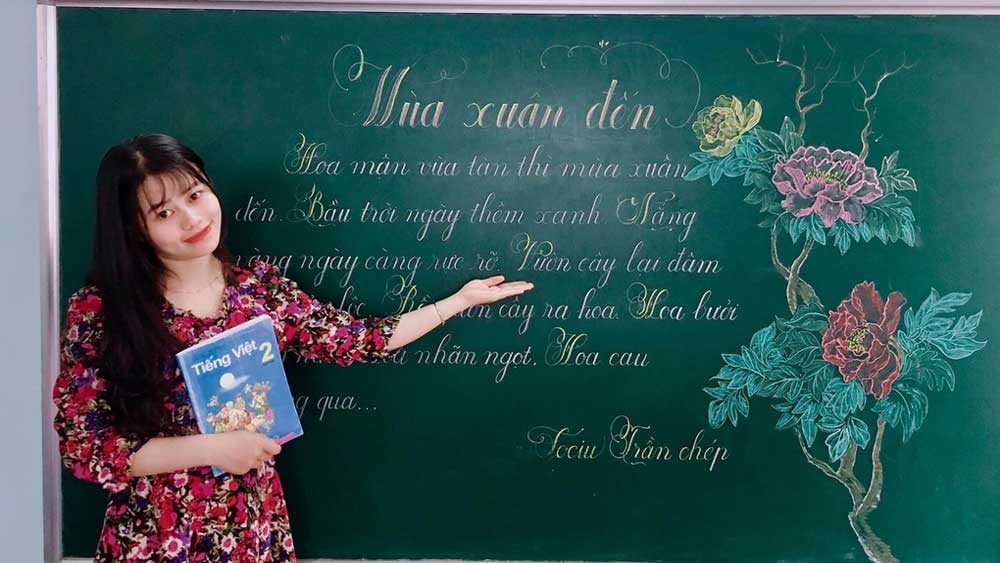 Mùa xuân đến
Hoa mận vừa tàn thì mùa xuân
đến. Bầu trời ngày thêm xanh. Nắng
ngày càng rực rỡ. Vườn cây lại đâm
cây ra hoa. Hoa bưởi
nhãn ngọt. Hoa cau
qua...
Tociu Trần chép
Tiếng Việt 2